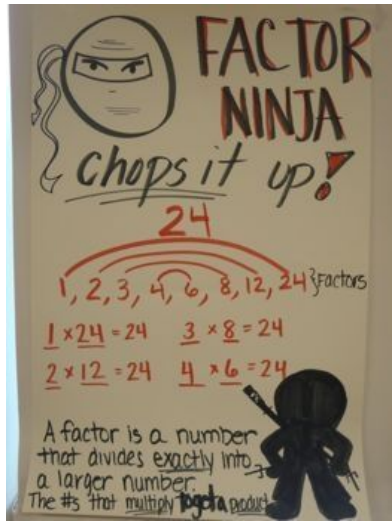 FACTOR
NINJA
Chops it up!
24
1, 2, 3, 4, 6, 8, 12, 24 } Factors
1 x 24 = 24 3 x 8 = 24
2 x 12 = 24 4 x 6 = 24
A factor is a number
that divides exactly into
a larger number.
The #s that multiply togeta product